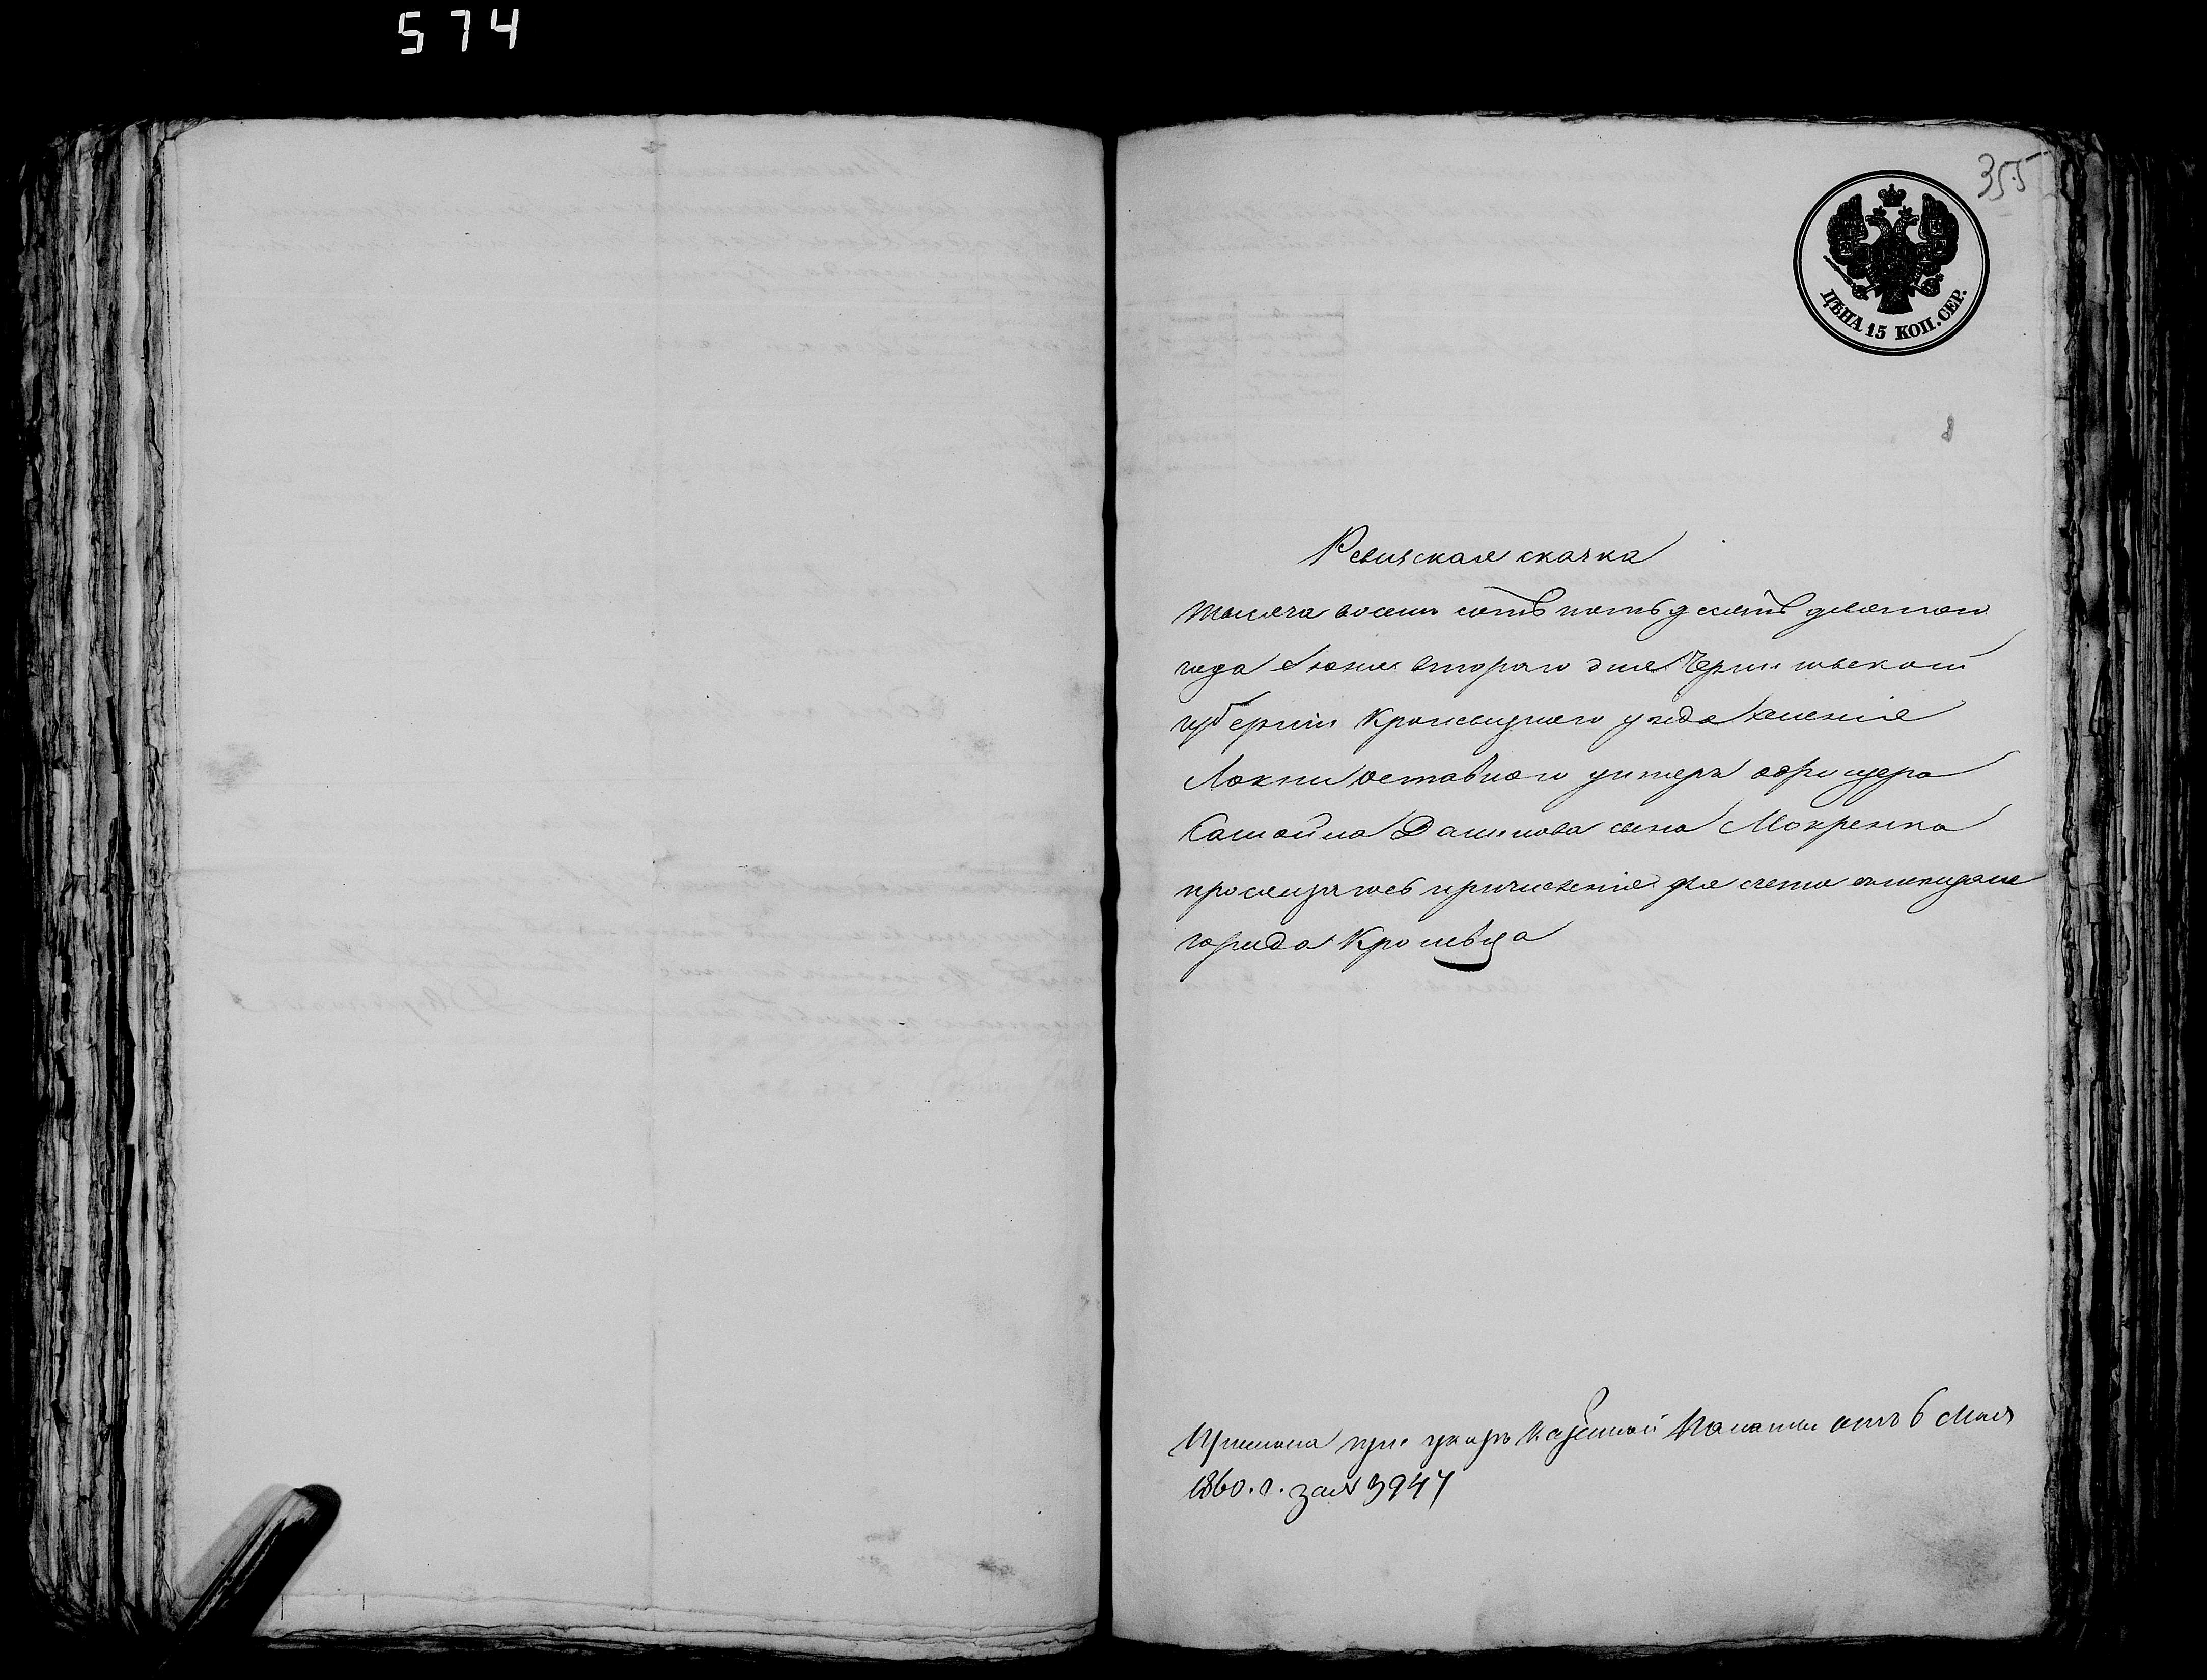 574
355
ЦѢНА 15 КОП. СЕР.
Ревизская сказка
тысяча восемь сотъ пятьдесятъ девятаго
года Іюня втораго дня Черниговской
губерніи Кролевецкаго уезда селенія
Локни отставнаго унтеръ офицера
Самойла Данилова сына Мокренка
просящагось причисленія для счета
города Кролевца
Принята при указе Казенной Палаты отъ 6 Мая
1860. г. за № 3947